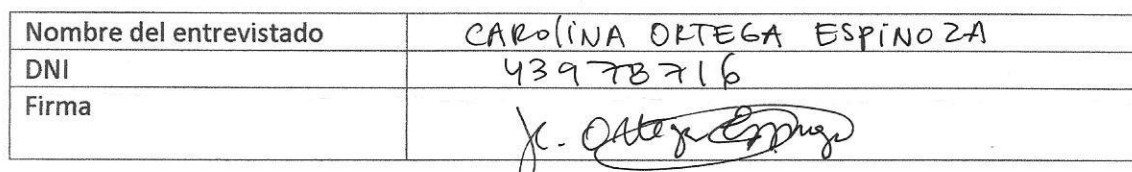 Nombre del entrevistado CAROLINA ORTEGA ESPINOZA
DNI 43978716
Firma Jc. Ortega Espinoza